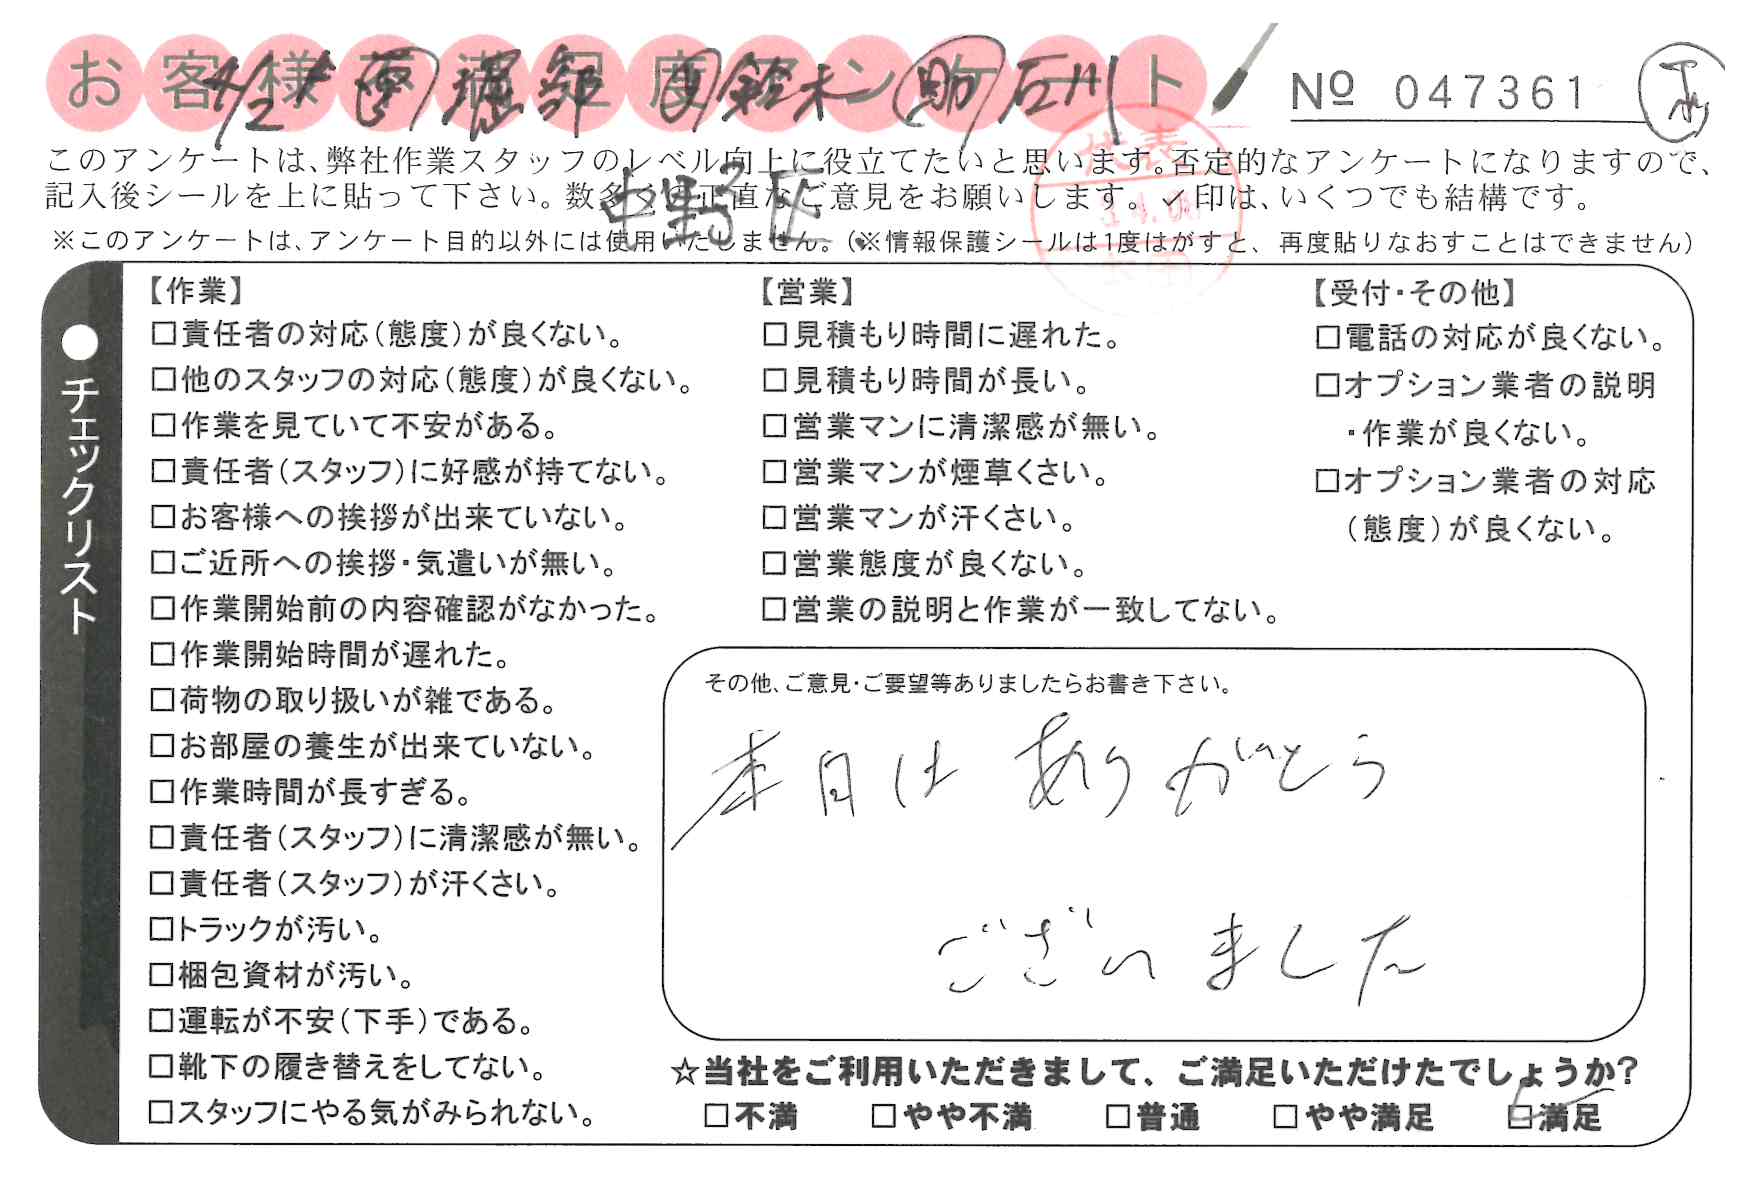 お客様満足度アンケート
堀部 鈴木 助 石川
№ 047361
このアンケートは、弊社作業スタッフのレベル向上に役立てたいと思います。否定的なアンケートになりますので、
記入後シールを上に貼って下さい。数多くの正直なご意見をお願いします。✓印は、いくつでも結構です。
中野区
代表
※このアンケートは、アンケート目的以外には使用いたしません。（※情報保護シールは1度はがすと、再度貼りなおすことはできません）
●チェックリスト
【作業】
□責任者の対応（態度）が良くない。
□他のスタッフの対応（態度）が良くない。
□作業を見ていて不安がある。
□責任者（スタッフ）に好感が持てない。
□お客様への挨拶が出来ていない。
□ご近所への挨拶・気遣いが無い。
□作業開始前の内容確認がなかった。
□作業開始時間が遅れた。
□荷物の取り扱いが雑である。
□お部屋の養生が出来ていない。
□作業時間が長すぎる。
□責任者（スタッフ）に清潔感が無い。
□責任者（スタッフ）が汗くさい。
□トラックが汚い。
□梱包資材が汚い。
□運転が不安（下手）である。
□靴下の履き替えをしてない。
□スタッフにやる気がみられない。
【営業】
□見積もり時間に遅れた。
□見積もり時間が長い。
□営業マンに清潔感が無い。
□営業マンが煙草くさい。
□営業マンが汗くさい。
□営業態度が良くない。
□営業の説明と作業が一致してない。
【受付・その他】
□電話の対応が良くない。
□オプション業者の説明
・作業が良くない。
□オプション業者の対応
（態度）が良くない。
その他、ご意見・ご要望等ありましたらお書き下さい。
本日は ありがとう
ございました
☆当社をご利用いただきまして、ご満足いただけたでしょうか？
□不満 □やや不満 □普通 □やや満足 □満足